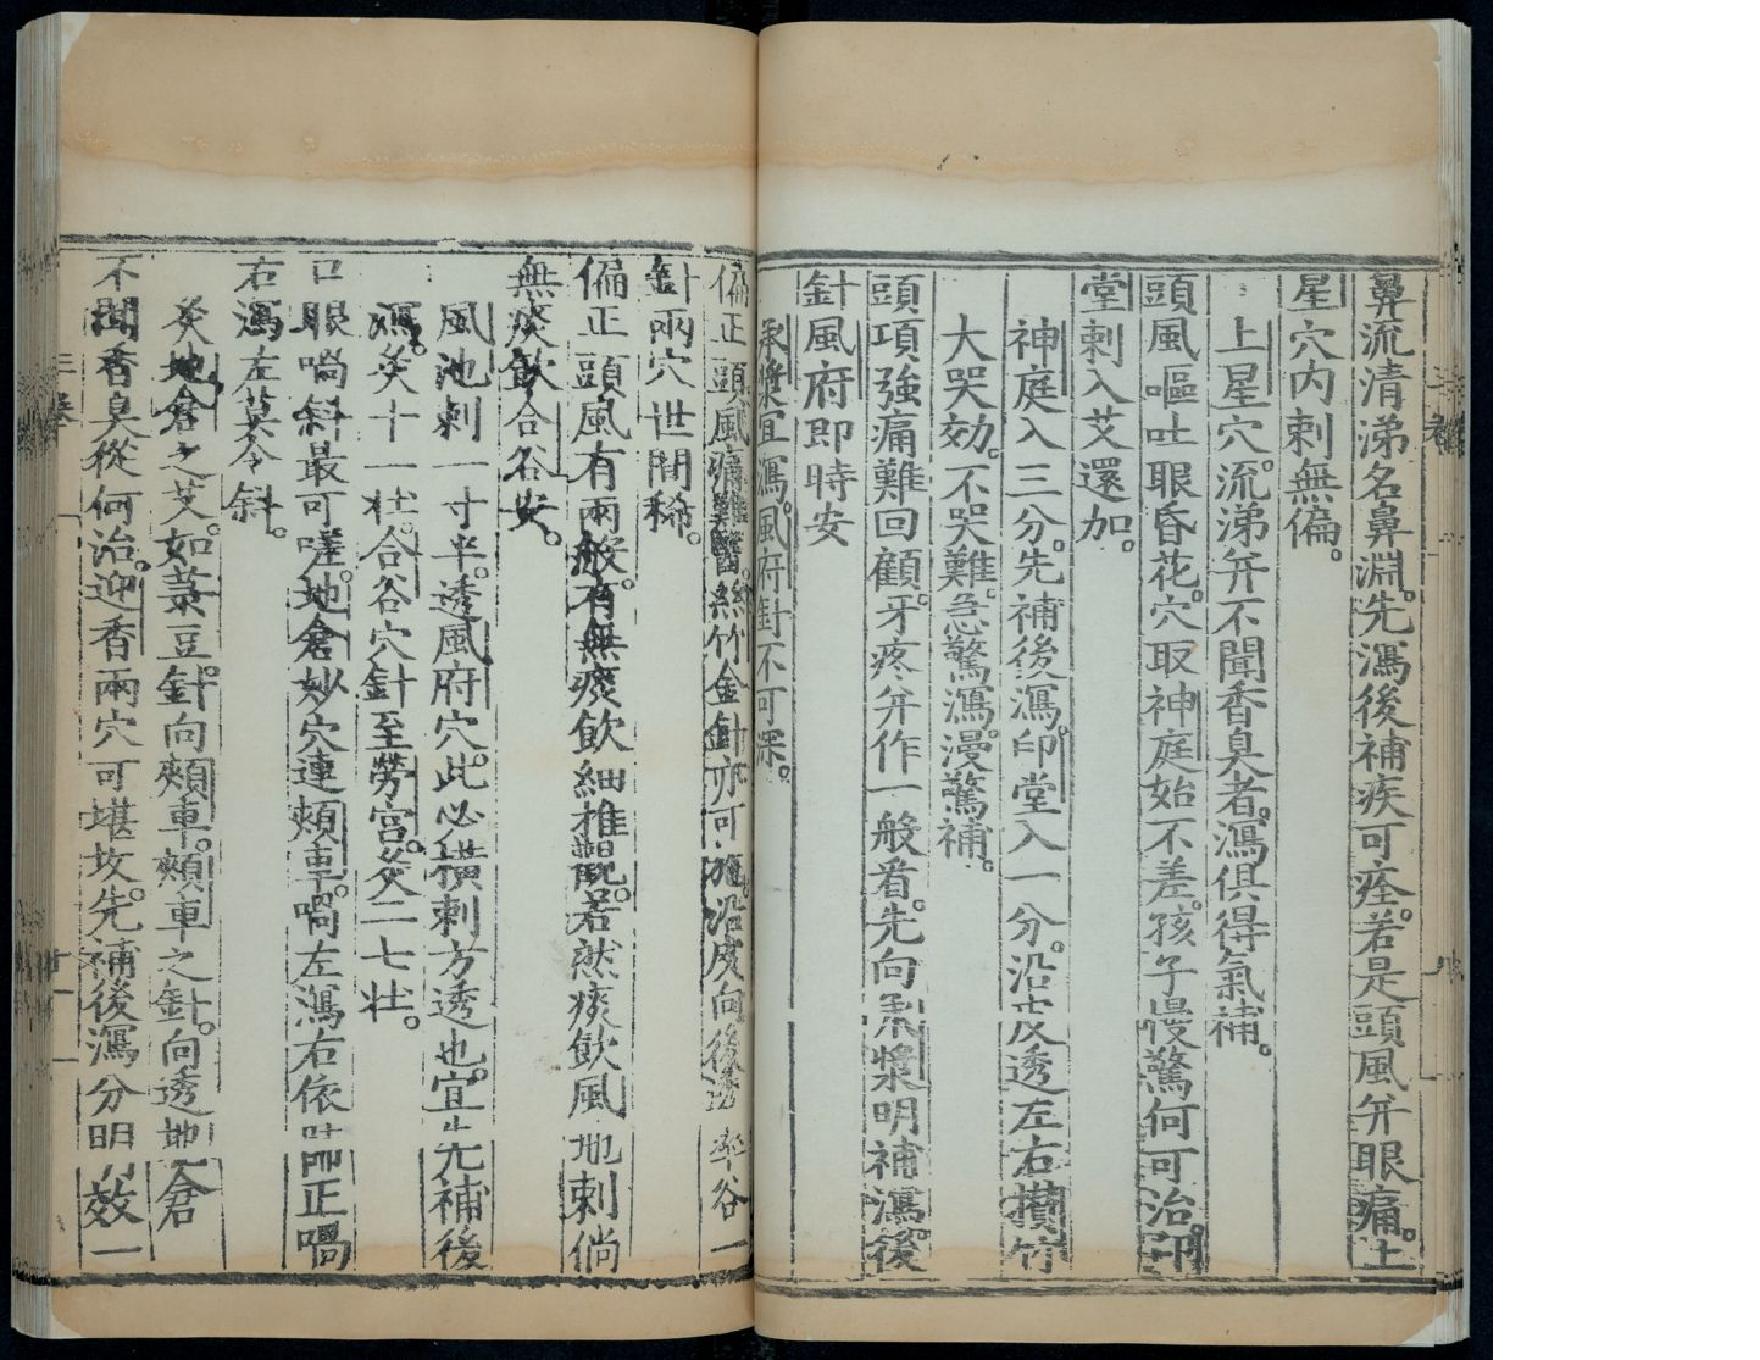 鼻流清涕名鼻淵。先瀉後補疾可痊。若是頭風并眼痛。上
星穴内刺無偏。
上星穴。流涕并不聞香臭者。瀉俱得氣補。
頭風嘔吐眼昏花。穴取神庭始不差。孩子慢驚何可治。印
堂刺入艾還加。
神庭入三分。先補後瀉。印堂入一分。沿皮透左右攢竹
大哭効。不哭難。急驚瀉。漫驚補。
頭項強痛難回顧。牙疼并作一般看。先向承漿明補瀉。後
針風府即時安
承漿宜瀉。風府針不可深。
偏正頭風痛難醫。絲竹金針亦可施。沿皮向後透率谷一
針兩穴世間稀。
偏正頭風有兩般。有無痰飲細推觀。若然痰飲風池刺倘
無痰飲合谷安。
風池刺一寸半。透風府穴。此必橫刺方透也。宜先補後
瀉。灸十一壯。合谷穴針至勞宮。灸二七壯。
口眼喎斜最可嗟。地倉妙穴連頰車。喎左瀉右依師正喎
右瀉左莫令斜。
灸地倉之艾。如菉豆。針向頰車。頰車之針。向透地倉
不聞香臭從何治。迎香兩穴可堪攻。先補後瀉分明效一